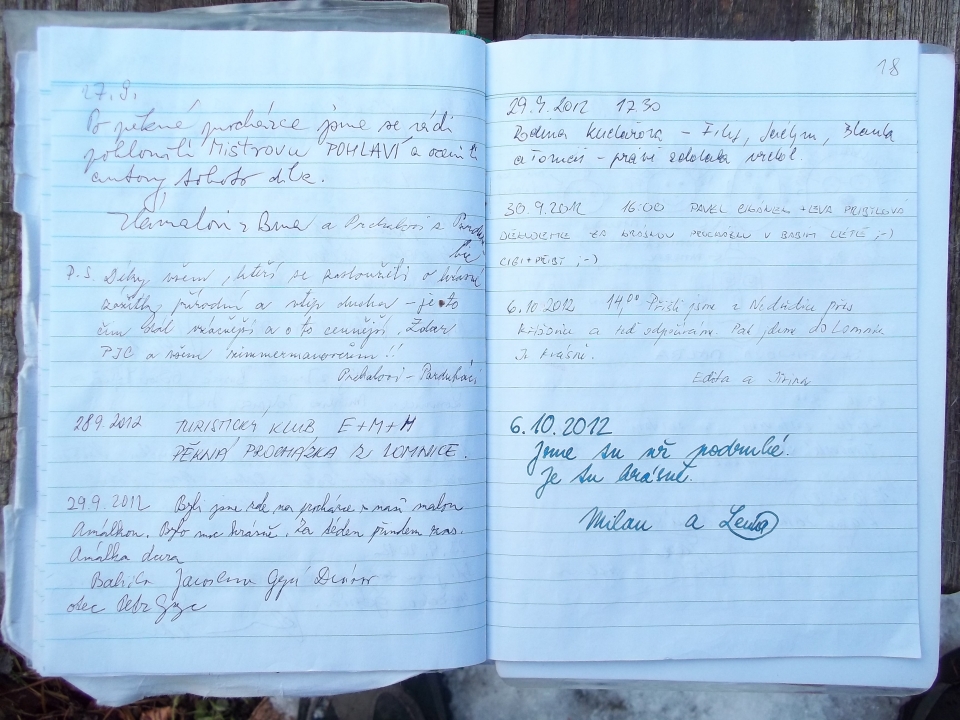 27.9.
Po pěkné procházce jsme se rádi
poklonili Mistrovu POHLAVÍ a ocenili
autory tohoto díla.
z Brna a Prchalovi z Pardu
bic
P.S. Díky všem, kteří se zasloužili o krásné
zážitky přírodní a vtip ducha - je to
čím dál vzácnější a o to cennější. Zdar
PJC a všem zimmermanovcům !!
Prchalovi - Pardubáci
28.9.2012 TURISTICKÝ KLUB E+M+M
PĚKNÁ PROCHÁZKA Z LOMNICE.
29.9.2012 Byli jsme zde na procházce s naší malou
Amálkou. Bylo moc krásně. Za týden přijdem zas.
Amálka
Babička Jaroslava
otec Petr
18
29.9.2012 17 30
Rodina Kuchařova - Filip, Blanka
a Tomáš - právě zdolala vrchol.
30.9.2012 16:00 PAVEL CIGÁNEK + EVA PŘIBYLOVÁ
DĚKUJEME ZA KRÁSNOU PROCHÁZKU V BABÍM LÉTĚ ;-)
CIGI + PŘIBY ;-)
6.10 2012 14,00 Přišli jsme z Nedvědice přes
a teď odpočíváme. Pak jdeme do Lomnice
Je krásně.
Edita a Jiřina
6.10.2012
Jsme tu už podruhé.
Je tu krásně.
Milan a Lenka